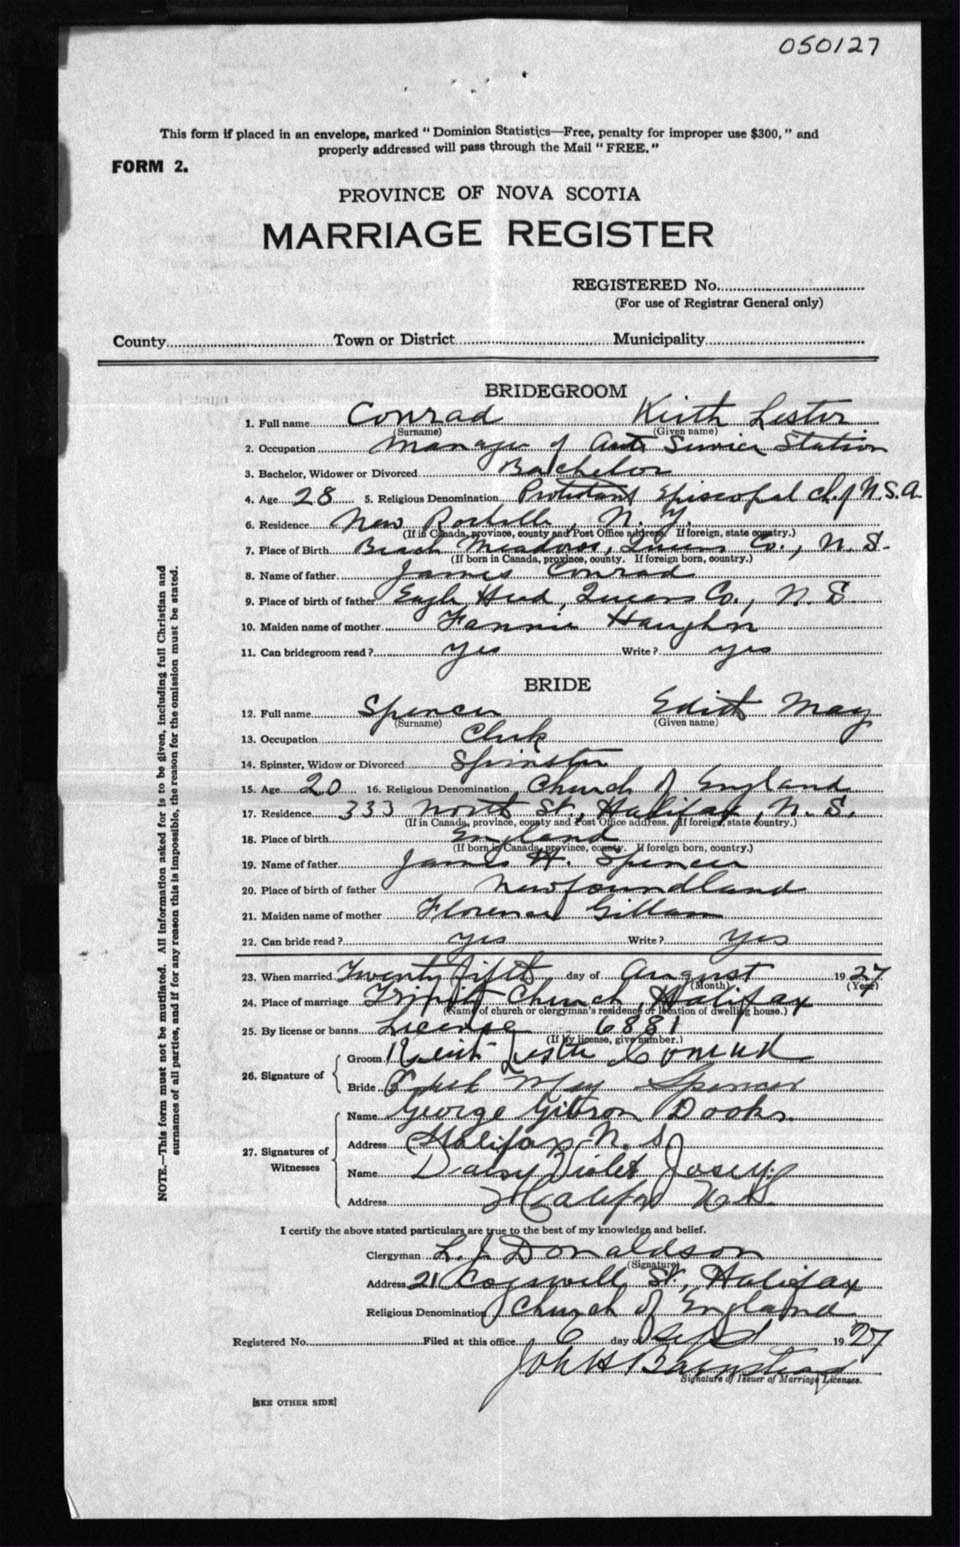 050127
This form if placed in an envelope, marked "Dominion Statistics—Free, penalty for improper use $300," and
properly addressed will pass through the Mail "FREE."
FORM 2.
PROVINCE OF NOVA SCOTIA
MARRIAGE REGISTER
REGISTERED No.
(For use of Registrar General only)
County Town or District Municipality
BRIDEGROOM
1. Full name Conrad Keith Lester
(Surname) (Given name)
2. Occupation Manager of Auto Service Station
3. Bachelor, Widower or Divorced Bachelor
4. Age 28 5. Religious Denomination Protestant Episcopal Ch. of U.S.A.
6. Residence New Rochelle, N.Y.
(If in Canada, province, county and Post Office address. If foreign, state country.)
7. Place of Birth Beach Meadows, Queens Co., N.S.
(If born in Canada, province, county. If foreign born, country.)
8. Name of father James Conrad
9. Place of birth of father Eagle Head, Queens Co., N.S.
10. Maiden name of mother Fannie
11. Can bridegroom read? yes Write? yes
BRIDE
12. Full name Spencer Edith May
(Surname) (Given name)
13. Occupation Clerk
14. Spinster, Widow or Divorced Spinster
15. Age 20 16. Religious Denomination Church of England
17. Residence 333 North St., Halifax, N.S.
(If in Canada, province, county and Post Office address. If foreign, state country.)
18. Place of birth England
(If born in Canada, province, county. If foreign born, country.)
19. Name of father James H. Spencer
20. Place of birth of father Newfoundland
21. Maiden name of mother Florence
22. Can bride read? yes Write? yes
23. When married Twenty fifth day of August 1927
(Month) (Year)
24. Place of marriage Trinity Church, Halifax
(Name of church or clergyman's residence or location of dwelling house.)
25. By license or banns License 6881
(If by license, give number.)
26. Signature of
Groom Keith Lester Conrad
Bride Edith May Spencer
27. Signatures of Witnesses
Name George Gibson Dooks
Address Halifax N.S.
Name Daisy Violet
Address Halifax N.S.
I certify the above stated particulars are true to the best of my knowledge and belief.
Clergyman L. J. Donaldson
(Signature)
Address 21 Cogswell St., Halifax
Religious Denomination Church of England
Registered No. Filed at this office 6 day of Sept 1927
Signature of Issuer of Marriage Licenses.
[SEE OTHER SIDE]
NOTE.—This form must not be mutilated. All information asked for is to be given, including full Christian and
surnames of all parties, and if for any reason this is impossible, the reason for the omission must be stated.